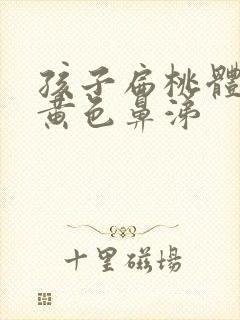 孩子扁桃體
黄色鼻涕
十里磁場